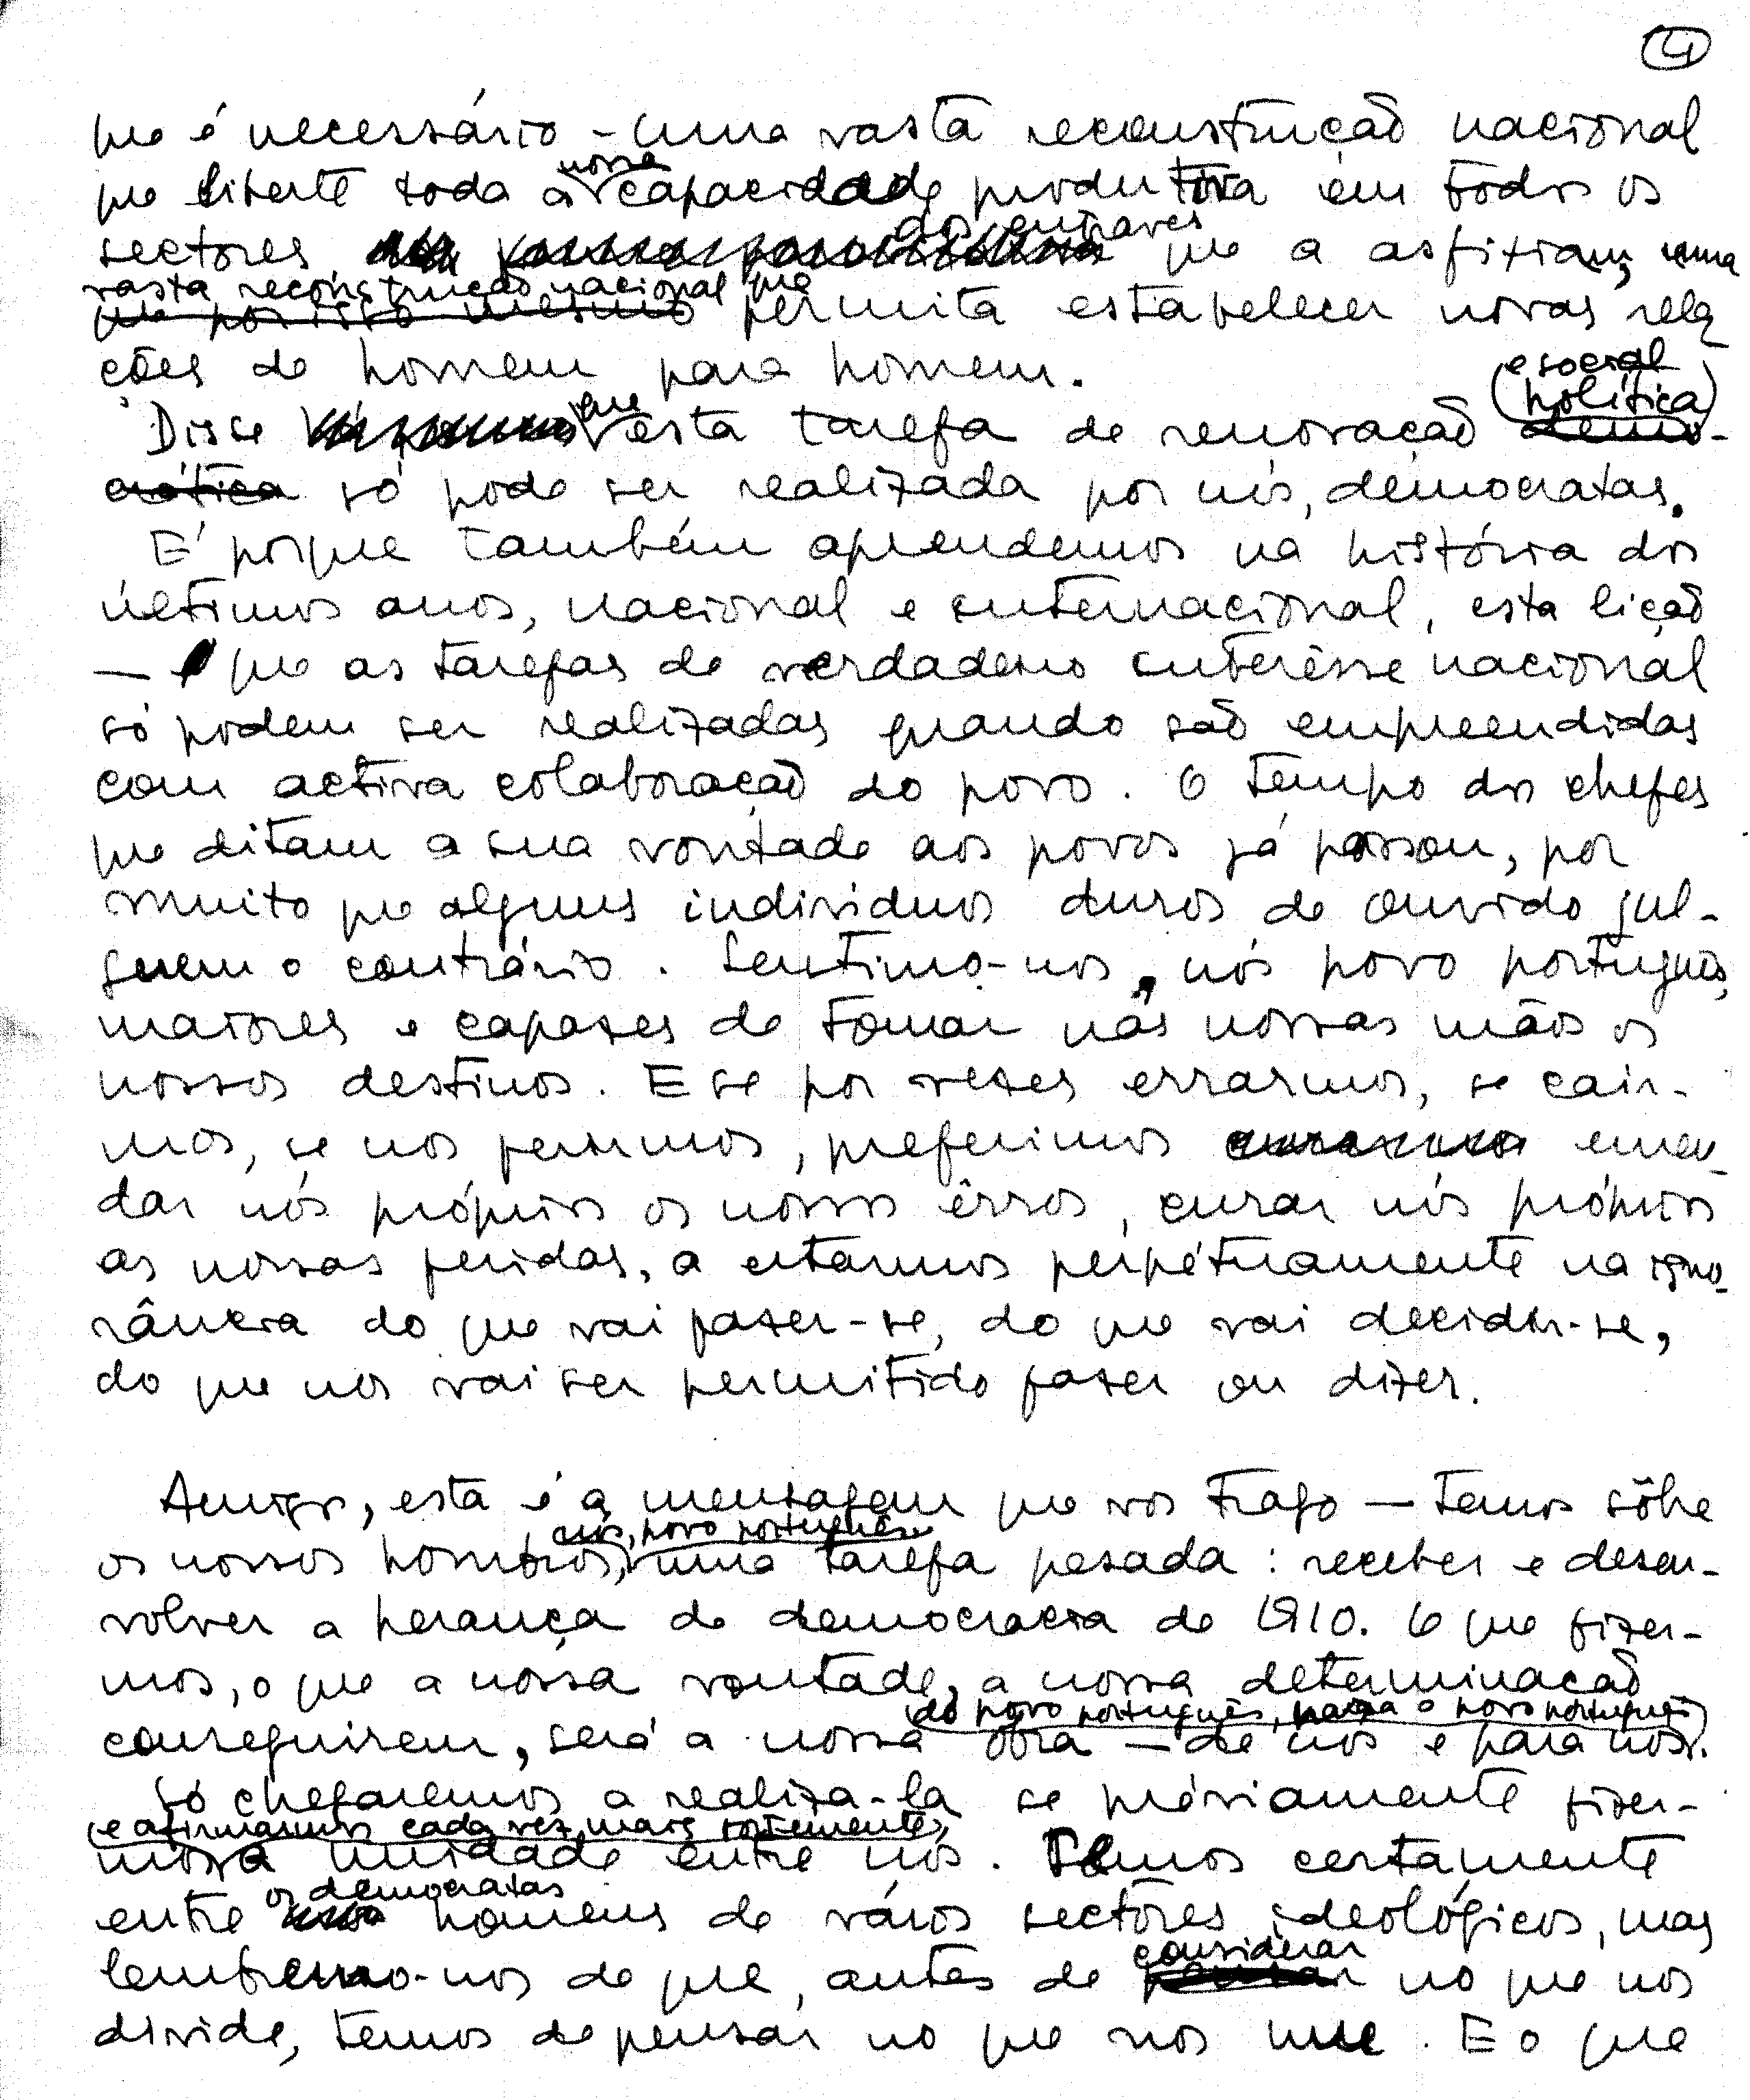 4
que é necessário - uma vasta reconstrução nacional
nossa
que liberte toda a capacidade produtora em todos os
dos entraves
sectores que a asfixiam, uma
vasta reconstrução nacional que
que por isso mesmo permita estabelecer novas rela
ções de homem para homem.
e social
política
que
Disse esta tarefa de renovação demo-
crática só pode ser realizada por nós, democratas.
É porque também aprendemos na história dos
últimos anos, nacional e internacional, esta lição
— que as tarefas de verdadeiro interêsse nacional
só podem ser realizadas quando são empreendidas
com activa colaboração do povo. O tempo dos chefes
que ditam a sua vontade aos povos já passou, por
muito que alguns indivíduos duros de ouvido jul-
guem o contrário. Sentimo-nos, nós povo português,
maiores e capazes de tomar nas nossas mãos os
nossos destinos. E se por vezes errarmos, se cair-
mos, se nos ferirmos, preferimos emen-
dar nós próprios os nossos êrros, curar nós próprios
as nossas feridas, a estarmos perpétuamente na igno-
rância do que vai fazer-se, do que vai decidir-se,
do que nos vai ser permitido fazer ou dizer.
Amigos, esta é a mensagem que vos trago — temos sôbre
nós, povo português
os nossos hombros, uma tarefa pesada: receber e desen-
volver a herança de democracia de 1910. O que fizer-
mos, o que a nossa vontade, a nossa determinação
do povo português, para o povo português
conseguirem, será a nossa obra — de nós e para nós.
Só chegaremos a realizá-la se préviamente fizer-
e afirmarmos cada vez mais fortemente,
mos a unidade entre nós. Temos certamente
os democratas
entre homens de vários sectores ideológicos, mas
considerar
lembremo-nos de que, antes de pensar no que nos
divide, temos de pensar no que nos une. E o que